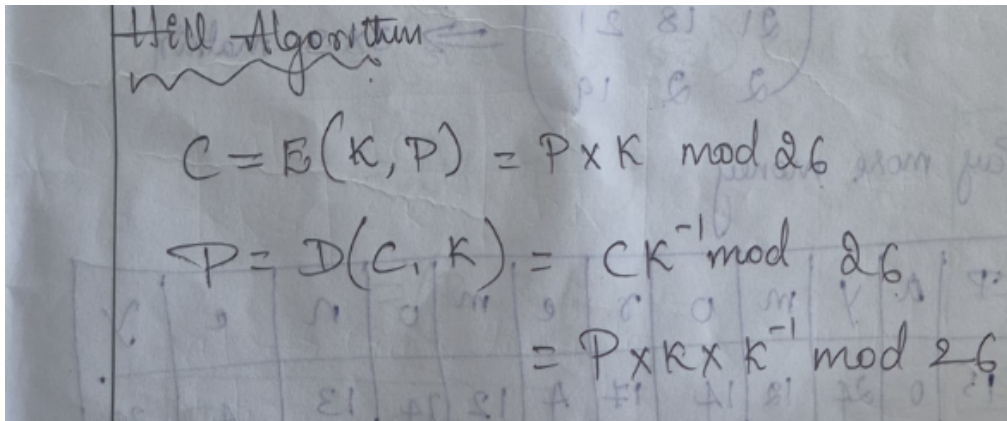 Hill Algorithm
C = E(K, P) = P x K mod 26
P = D(C, K) = CK⁻¹ mod 26
= P x K x K⁻¹ mod 26